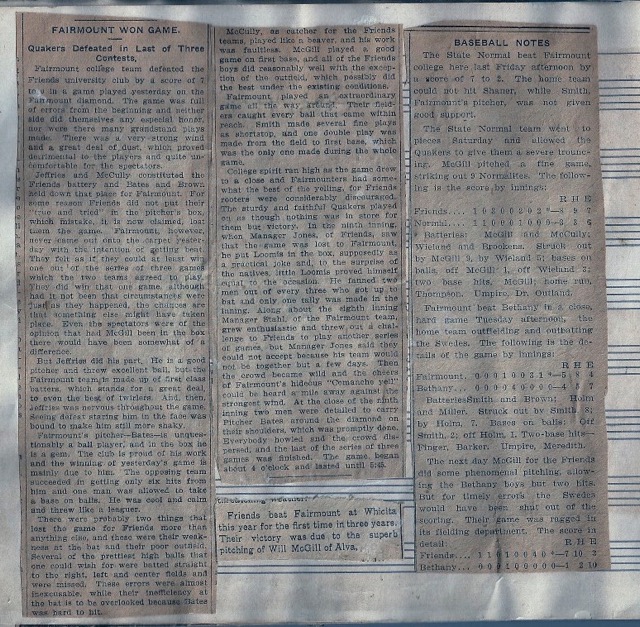 FAIRMOUNT WON GAME.
Quakers Defeated in Last of Three
Contests,
Fairmount college team defeated the
Friends university club by a score of 7
to in a game played yesterday on the
Fairmount diamond. The game was full
of errors from the beginning and neither
side did themselves any especial honor,
nor were there many grandstand plays
made. There was a very strong wind
and a great deal of dust, which proved
detrimental to the players and quite un-
comfortable for the spectators.
Jeffries and McCully constituted the
Friends battery and Bates and Brown
held down that place for Fairmount. For
some reason Friends did not put their
"true and tried" in the pitcher's box,
which mistake, it is now claimed, lost
them the game. Fairmount, however,
never came out onto the carpet yester-
day with the intention of getting beat.
They felt as if they could at least win
one out of the series of three games
which the two teams agreed to play.
They did win that one game, although
had it not been that circumstances were
just as they happened, the chances are
that something else might have taken
place. Even the spectators were of the
opinion that had McGill been in the box
there would have been somewhat of a
difference.
But Jeffries did his part. He is a good
pitcher and threw excellent ball, but the
Fairmount team is made up of first class
batters, which stands for a great deal,
to even the best of twirlers. And, then,
Jeffries was nervous throughout the game,
seeing defeat staring him in the face was
bound to make him still more shaky.
Fairmount's pitcher—Bates—is unques-
tionably a ball player, and in the box he
is a gem. The club is proud of his work
and the winning of yesterday's game is
mainly due to him. The opposing team
succeeded in getting only six hits from
him and one man was allowed to take
a base on balls. He was cool and calm
and threw like a leaguer.
There were probably two things that
lost the game for Friends more than
anything else, and these were their weak-
ness at the bat and their poor outfield.
Several of the prettiest high balls that
one could wish for were batted straight
to the right, left and center fields and
were missed. These errors were almost
inexcusable, while their inefficiency at
the bat is to be overlooked because Bates
was hard to hit.
McCully, as catcher for the Friends
teams, played like a beaver, and his work
was faultless. McGill played a good
game on first base, and all of the Friends
boys did reasonably well with the excep-
tion of the outfield, which possibly did
the best under the existing conditions.
Fairmount played an extraordinary
game all the way around. Their field-
ers caught every ball that came within
reach. Smith made several fine plays
as shortstop, and one double play was
made from the field to first base, which
was the only one made during the whole
game.
College spirit ran high as the game drew
to a close and Fairmounters had some
what the best of the yelling, for Friends
rooters were considerably discouraged.
The sturdy and faithful Quakers played
on as though nothing was in store for
them but victory. In the ninth inning,
when Manager Jones, of Friends, saw
that the game was lost to Fairmount,
he put Loomis in the box, supposedly as
a practical joke and, to the surprise of
the natives, little Loomis proved himself
equal to the occasion. He fanned two
men out of every three who got up to
bat and only one tally was made in the
inning. Along about the eighth inning
Manager Stahl, of the Fairmount team,
grew enthusiastic and threw out a chal-
lenge to Friends to play another series
of games, but Manager Jones said they
could not accept because his team would
not be together but a few days. Then
the crowd became wild and the cheers
of Fairmount's hideous "Comanche yell"
could be heard a mile away against the
strongest wind. At the close of the ninth
inning two men were detailed to carry
Pitcher Bates around the diamond on
their shoulders, which was promptly done.
Everybody howled and the crowd dis-
persed, and the last of the series of three
games was finished. The game began
about 4 o'clock and lasted until 5:45.
weather.
Friends beat Fairmount at Whicita
this year for the first time in three years.
Their victory was due to the superb
pitching of Will McGill of Alva.
BASEBALL NOTES
The State Normal beat Fairmount
college here last Friday afternoon by
a score of 7 to 2. The home team
could not hit Shaner, while Smith,
Fairmount's pitcher, was not given
good support.
The State Normal team went to
pieces Saturday and allowed the
Quakers to give them a severe trounc-
ing. McGill pitched a fine game,
striking out 9 Normalites. The follow-
ing is the score by innings:
R H E
Friends....
Normal....
Batteries: McGill and McCully;
Wieland and Brookens. Struck out
by McGill 9, by Wieland 5; bases on
balls, off McGill 1, off Wieland 3;
two base hits, McGill; home run,
Thompson. Umpire, Dr. Outland.
Fairmount beat Bethany in a close,
hard game Tuesday afternoon, the
home team outfielding and outbatting
the Swedes. The following is the de-
tails of the game by innings:
R H E
Fairmount.
Bethany...
Batteries—Smith and Brown; Holm
and Miller. Struck out by Smith
by Holm, 7. Bases on balls: Off
Smith, 2; off Holm, 1. Two-base hits—
Finger, Barker. Umpire, Meredith.
The next day McGill for the Friends
did some phenomenal pitching, allow-
ing the Bethany boys but two hits.
But for timely errors the Swedes
would have been shut out of the
scoring. Their game was ragged in
its fielding department. The score in
detail:
R H E
Friends...
Bethany...